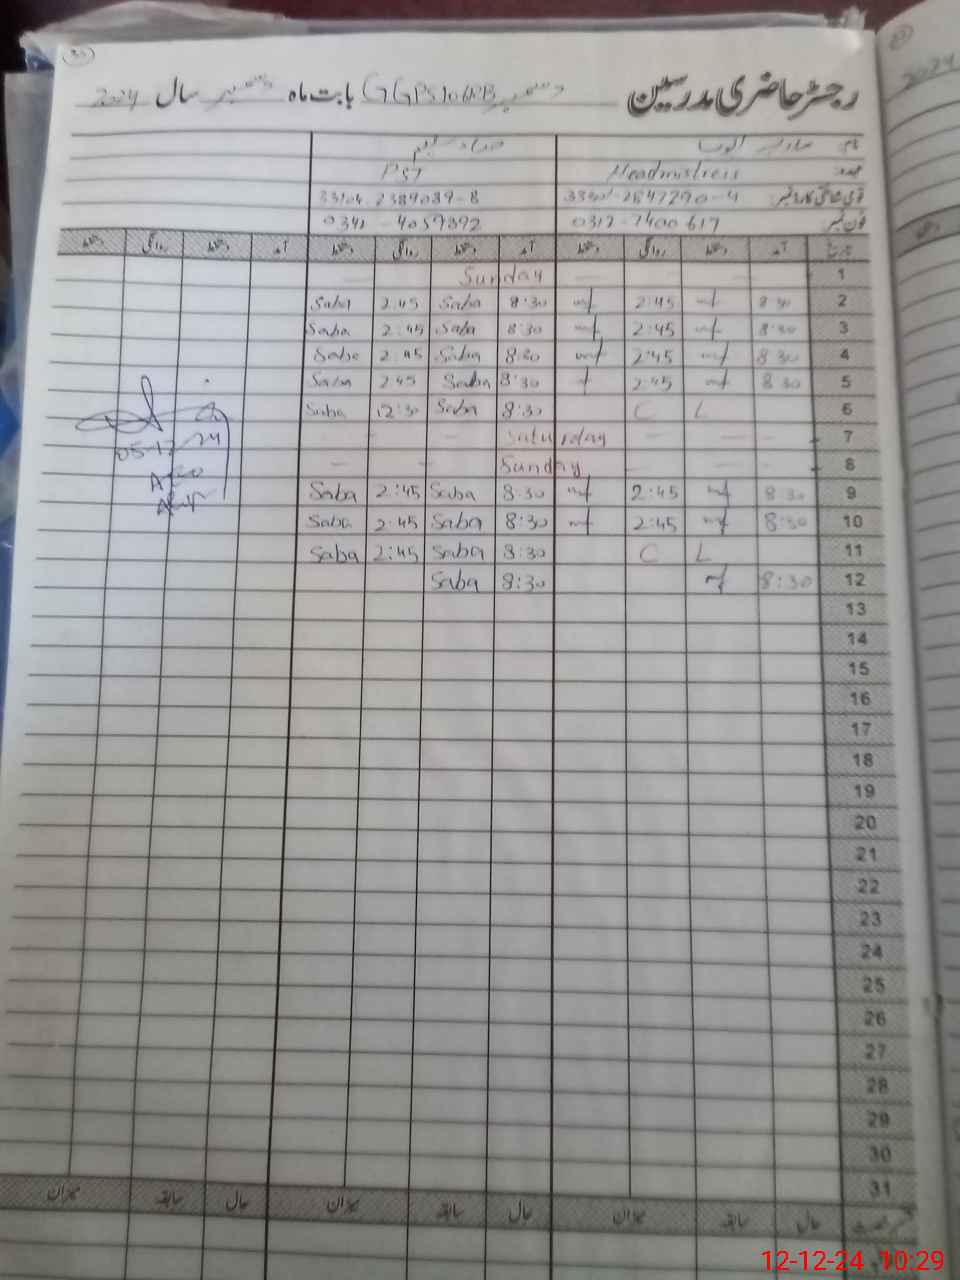 رجسٹر حاضری مدرسین دسمبر بابت ماہ دسمبر سال 2024
نام
عہدہ Headmistress PST
قومی شناختی کارڈ نمبر 33104-2389089-8
فون نمبر 0312-7400617 0342-4059392
تاریخ آمد دستخط روانگی دستخط آمد دستخط روانگی دستخط آمد دستخط روانگی دستخط
1 Sunday
2 8:30 2:45 8:30 Saba 2:45 Saba
3 8:30 2:45 8:30 Saba 2:45 Saba
4 8:30 2:45 8:30 Saba 2:45 Saba
5 8:30 2:45 8:30 Saba 2:45 Saba
6 L C 8:30 Saba 12:30 Saba
7 Saturday
8 Sunday
9 8:30 2:45 8:30 Saba 2:45 Saba
10 8:30 2:45 8:30 Saba 2:45 Saba
11 L C 8:30 Saba 2:45 Saba
12 8:30 8:30 Saba
13
14
15
16
17
18
19
20
21
22
23
24
25
26
27
28
29
30
31
حال سابقہ میزان حال سابقہ میزان حال سابقہ میزان
05-12-24
AEO
2024
12-12-24 10:29